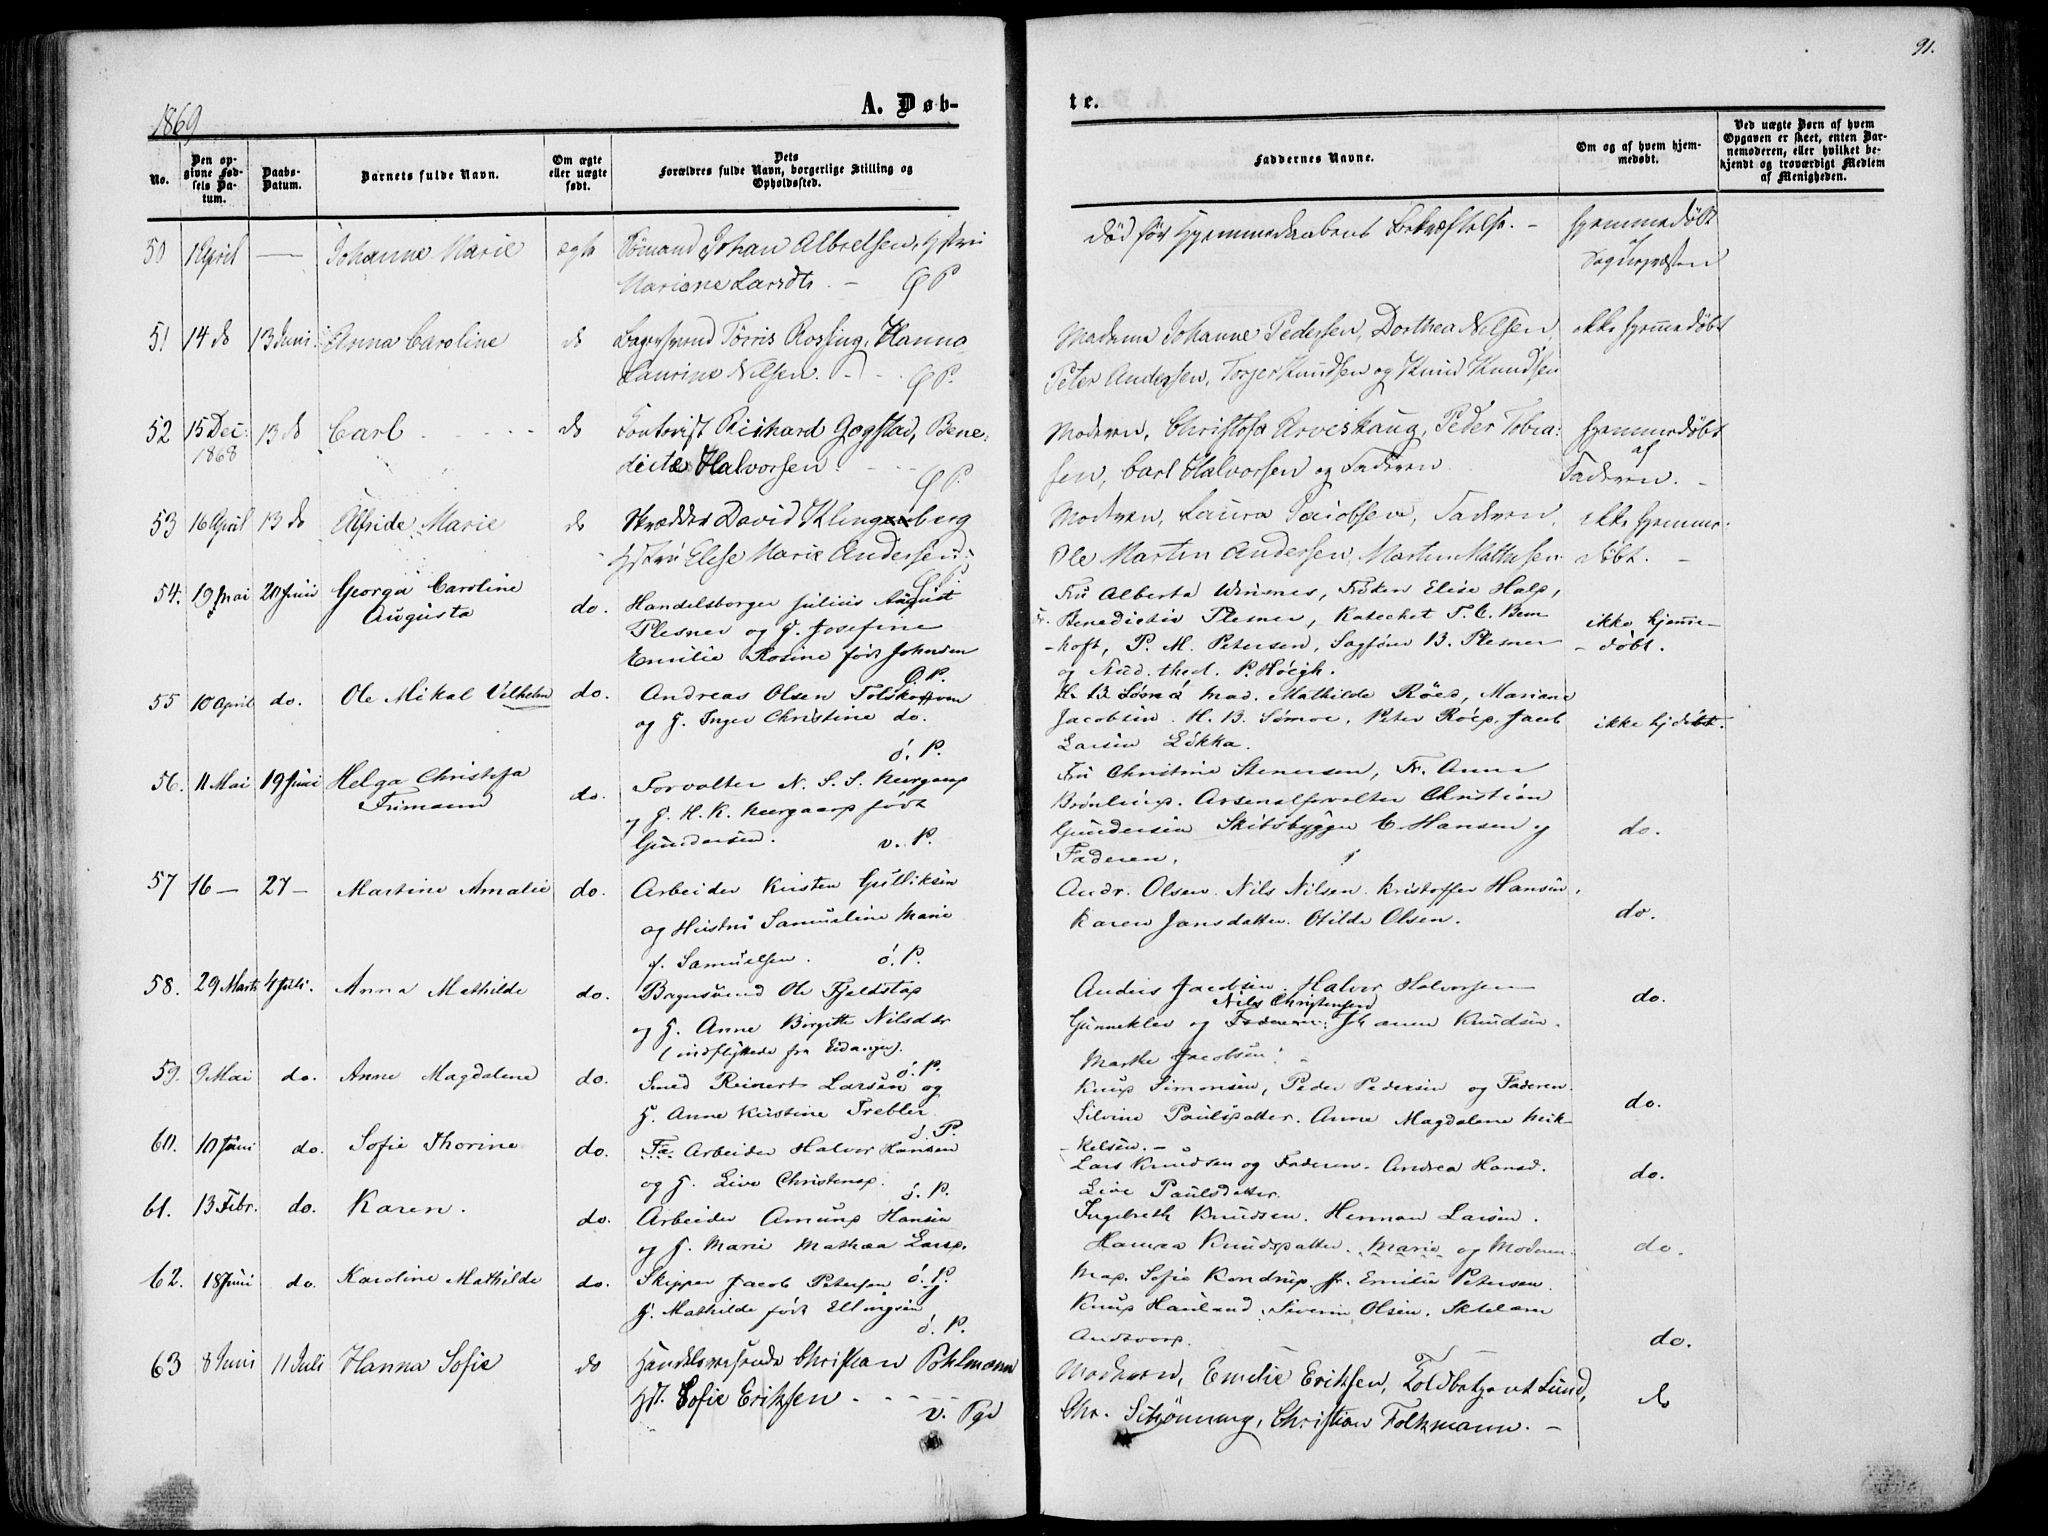 91.
1869
A. Døb-
te.
No.
Den opgivne Fødsels Datum.
Daabs-Datum.
Barnets fulde Navn.
Om ægte eller uægte født.
Dets Forældres fulde Navn, borgerlige Stilling og Opholdssted.
Faddernes Navne.
Om og af hvem hjemmedøbt.
Ved uægte Børn af hvem Opgaven er skeet, enten Barnemoderen, eller hvilket bekjendt og troværdigt Medlem af Menigheden.
50 1 April — Johanne Marie ægte Sømand Johan
Mariane Larsdtr. — Ø P
død før Hjemmedaabens Bekræftelse. — hjemmedøbt
af
Sognepræsten
51 14 do 13 Juni Anna Caroline do Bagersvend Tørris Rossing, Hanna
Laurine Nilsen. Ø P.
Madame Johanne Pedersen, Dorthea Nilsen, ikke hjemmedøbt
Peter Andersen, Torjer Knudsen og Knud Knudsen
52 15 Dec. 1868 13 do Carl do Contorist Richard Gogstad, Bene-
dicte Halvorsen Ø P.
Moderen, Christofa Arveskaug, Peder Tobia-
sen, Carl Halvorsen og Faderen
hjemmedøbt
af
Faderen. —
53 16 April 13 do Alfride Marie do Skrædder David Klingenberg
Hstru Elise Marie Andersen
Ø P.
Moderen, Laura Jacobsen, Faderen,
Ole Martin Andersen, Martin Mathisen
ikke hjemme-
døbt. —
54. 19 Mai 20 Juni Georga Caroline
Augusta
do. Handelsborger Julius August
Plesner og H. Josefine
Emilie Rosine født Johnsen
Ø. P.
Fru Alberta Winsnes, Frøken Elise Halp,
Fr. Benedictie Plesner, Katechet T. C. Bern
-hoft, P. M. Petersen, Sagfører B. Plesner
og Stud. theol. P. Høegh.
ikke hjemme-
- døbt.
55 10 April do. Ole Mikal Vilhelm do. Andreas Olsen
og H. Inger Christine do.
ö. P.
Mad. Mathilde Röed, Mariane
Jacobsen. H. B. Sømoe. Peter Röed, Jacob
Larsen Lökka.
ikke hjdöbt.
56. 11 Mai 19 Juni Helga Christofa
Frimann
do. Forvalter N. S. S. Neergaard
og H. H. K. Neergaard født
Gundersen. v. P.
Fru Christine Stenersen, Fr. Anna
Brönlund. Arsenalforvalter Christian
Gundersen Skibsbygger C. Hansen og
Faderen.
do.
57 16 — 27 — Martine Amalie do. Arbeider Kristen Gulliksen
og Hustru Samueline Marie
f. Samuelsen. ö. P.
Andr. Olsen. Nils Nilsen. Kristoffer Hansen.
Karen Jansdatter. Otilde Olsen.
do.
58. 29 Marts 4 Juli. Anna Mathilde do. Bagersvend Ole Fjeldstad
og H. Anne Birgitte Nilsdtr
(indflyttede fra Eidanger).
ö. P.
Anders Jacobsen. Halvor Halvorsen
Nils Christensen
Gunneklev og Faderen. Johanne Knudsen.
Marthe Jacobsen.
do.
59. 9 Mai do. Anne Magdalene do. Smed Reinert Larsen og
H. Anne Kirstine Trebler
ö. P.
Knud Simonsen, Peder Pedersen og Faderen.
Silvine Paulsdatter. Anne Magdalene Mik-
kelsen. —
do.
60. 10 Juni do. Sofie Thorine do. Fa Arbeider Halvor Hansen
og H. Live Christensd.
ö. P.
Lars Knudsen og Faderen. Andrea Hansd.
Live Paulsdatter.
do.
61. 13 Febr. do. Karen. do. Arbeider Amund Hansen
og H. Marie Mathea Larsd.
ö. P.
Ingebreth Knudsen. Herman Larsen.
Hanna Knudsdatter. Marie og Moderen.
do.
62. 18 Juni do. Karoline Mathilde do. Skipper Jacob Petersen og
H. Mathilde født Ellingsen
ö. P.
Mad. Sofie Kondrup fr. Emilie Petersen.
Knud Hauland. Siverin Olsen. Skolelærer
Andsvorp.
do.
63 8 Juni 11 Juli Hanna Sofie do Handelsreisende Christian Pohlmann
Hst. Sofie Eriksen
v. Pgd
Moderen, Emilie Eriksen, Toldbetjent Lund,
Chr. Schjønning, Christian Folkmann. —
do